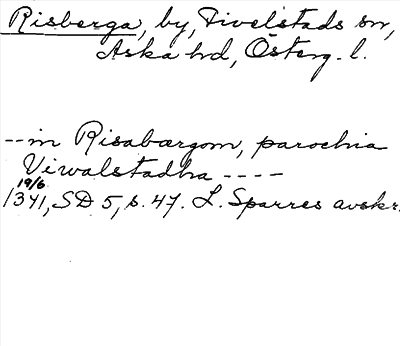 Risberga, by, Tivelstads sn,
Aska hd, Österg. l.
--in Risabærgom, parochia
Viwalstadha ----
19/6
1341, SD 5, s. 47. L. Sparres avskr.